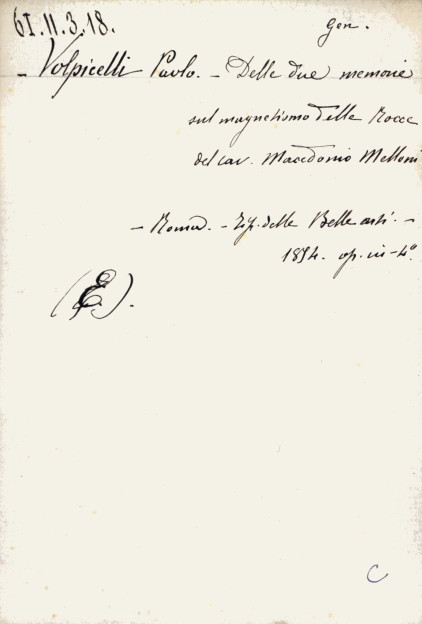 61.11.3.18.
Gen.
- Volpicelli Paolo. - Delle due memorie
sul magnetismo delle Rocce
del cav. Macedonio Melloni
- Roma. - Tip. delle Belle arti. -
1854. op. in-4°.
(E).
C